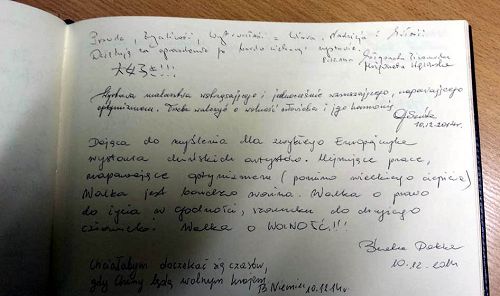 Prawda, Życzliwość, Wytrwałość = Wiara, Nadzieja i Miłość
Dziękuję za oprowadzenie po bardzo ciekawej wystawie.
Małgorzata
!!!
Wystawa malarstwa wstrząsającego i jednocześnie wzruszającego, napawającego
optymizmem. Trzeba walczyć o wolność człowieka i jego harmonię
10.12.2014r.
Dająca do myślenia dla zwykłego Europejczyka
wystawa chińskich artystów. Ujmujące prace,
napawające optymizmem (pomimo wielkiego cierpienia)
Walka jest bardzo ważna. Walka o prawo
do życia w godności, szacunku do drugiego
człowieka. Walka o WOLNOŚĆ!!!
10-12-2014
Chciałabym doczekać się czasów,
gdy Chiny będą wolnym krajem
B Niemiec 10.12.14r.